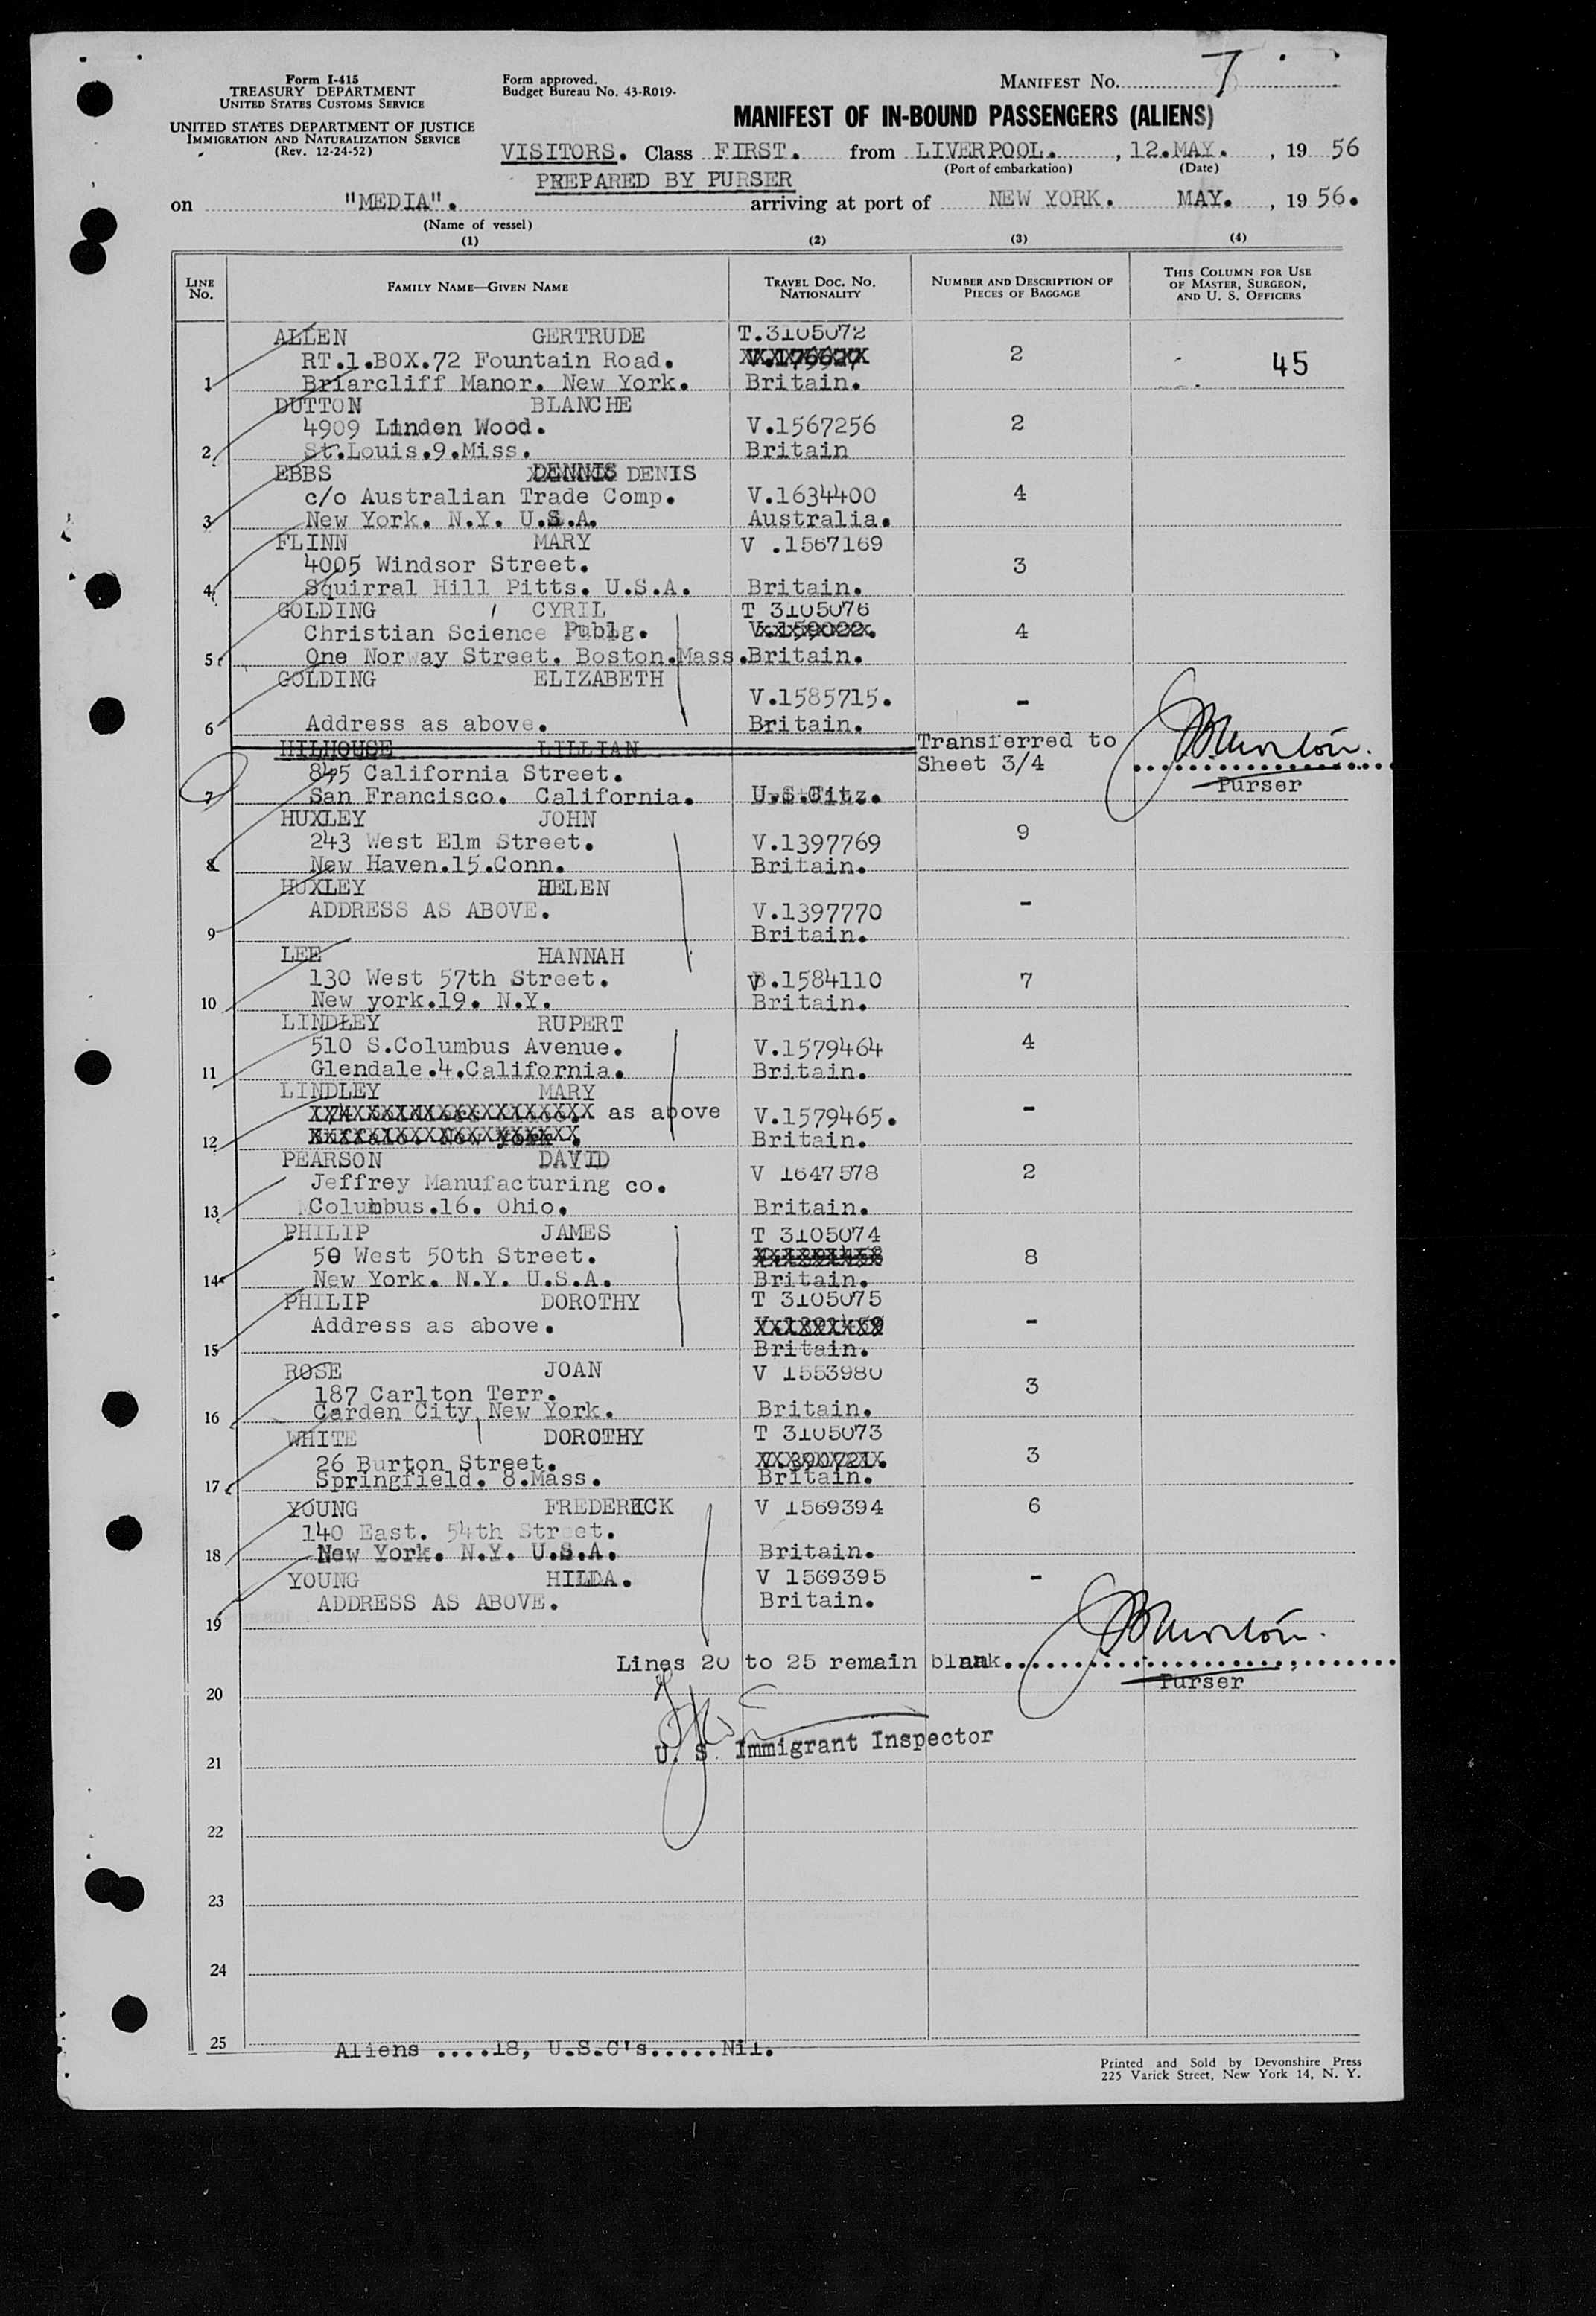 Form I-415
TREASURY DEPARTMENT
UNITED STATES CUSTOMS SERVICE
UNITED STATES DEPARTMENT OF JUSTICE
IMMIGRATION AND NATURALIZATION SERVICE
(Rev. 12-24-52)
Form approved.
Budget Bureau No. 43-R019-
MANIFEST No. 7
MANIFEST OF IN-BOUND PASSENGERS (ALIENS)
VISITORS. Class FIRST. from LIVERPOOL. , 12.MAY. , 19 56
(Port of embarkation) (Date)
PREPARED BY PURSER
on "MEDIA". arriving at port of NEW YORK. MAY. , 19 56.
(Name of vessel)
(1) (2) (3) (4)
LINE No. FAMILY NAME—GIVEN NAME TRAVEL DOC. No. NATIONALITY NUMBER AND DESCRIPTION OF PIECES OF BAGGAGE THIS COLUMN FOR USE OF MASTER, SURGEON, AND U. S. OFFICERS
ALLEN GERTRUDE T.3105072
RT.1.BOX.72 Fountain Road. 2 45
1 Briarcliff Manor. New York. Britain.
DUTTON BLANCHE
4909 Linden Wood. V.1567256 2
2 St.Louis.9.Miss. Britain
EBBS DENNIS DENIS
c/o Australian Trade Comp. V.1634400 4
3 New York. N.Y. U.S.A. Australia.
FLINN MARY V .1567169
4005 Windsor Street. 3
4 Squirral Hill Pitts. U.S.A. Britain.
GOLDING CYRIL T 3105076
Christian Science Publg. 4
5 One Norway Street. Boston.Mass.Britain.
GOLDING ELIZABETH
V.1585715. -
6 Address as above. Britain.
HILHOUSE LILLIAN Transferred to
845 California Street. Sheet 3/4
7 San Francisco. California. U.S.Citz. Purser
HUXLEY JOHN 9
243 West Elm Street. V.1397769
8 New Haven.15.Conn. Britain.
HUXLEY HELEN
ADDRESS AS ABOVE. V.1397770 -
9 Britain.
LEE HANNAH
130 West 57th Street. V.1584110 7
10 New york.19. N.Y. Britain.
LINDLEY RUPERT
510 S.Columbus Avenue. V.1579464 4
11 Glendale.4.California. Britain.
LINDLEY MARY
as above V.1579465. -
12 Britain.
PEARSON DAVID
Jeffrey Manufacturing co. V 1647578 2
13 Columbus.16. Ohio. Britain.
PHILIP JAMES T 3105074
50 West 50th Street. 8
14 New York. N.Y. U.S.A. Britain.
PHILIP DOROTHY T 3105075
Address as above. -
15 Britain.
ROSE JOAN V 1553980
187 Carlton Terr. 3
16 Garden City, New York. Britain.
WHITE DOROTHY T 3105073
26 Burton Street. 3
17 Springfield. 8.Mass. Britain.
YOUNG FREDERICK V 1569394 6
140 East. 54th Street.
18 New York. N.Y. U.S.A. Britain.
YOUNG HILDA. V 1569395 -
ADDRESS AS ABOVE. Britain.
19
Lines 20 to 25 remain blank.
Purser
20
U. S. Immigrant Inspector
21
22
23
24
25
Aliens ....18, U.S.C's.....Nil.
Printed and Sold by Devonshire Press
225 Varick Street, New York 14, N. Y.